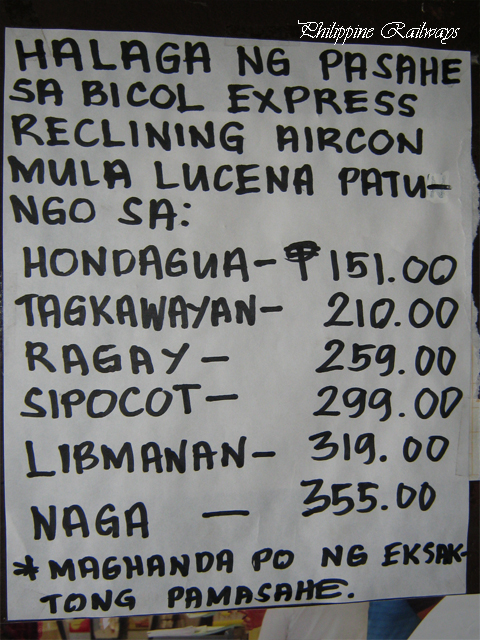 Philippine Railways
HALAGA NG PASAHE
SA BICOL EXPRESS
RECLINING AIRCON
MULA LUCENA PATU-
NGO SA:
HONDAGUA- ₱151.00
TAGKAWAYAN- 210.00
RAGAY - 259.00
SIPOCOT- 299.00
LIBMANAN- 319.00
NAGA - 355.00
* MAGHANDA PO NG EKSAK-
TONG PAMASAHE.